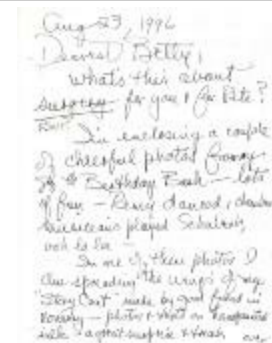 Aug 23, 1996
Dearest Betty,
What's this about
surgery for you & for Pete?
I'm enclosing a couple
of cheerful photos from
Birthday Bash — lots
of fun — danced, chamber
musicians played Schubert,
ooh la la —
In one of these photos I
am spreading the wings of my
"Story Coat" made by good friend in
photos & text on
silk — a great surprise &
over